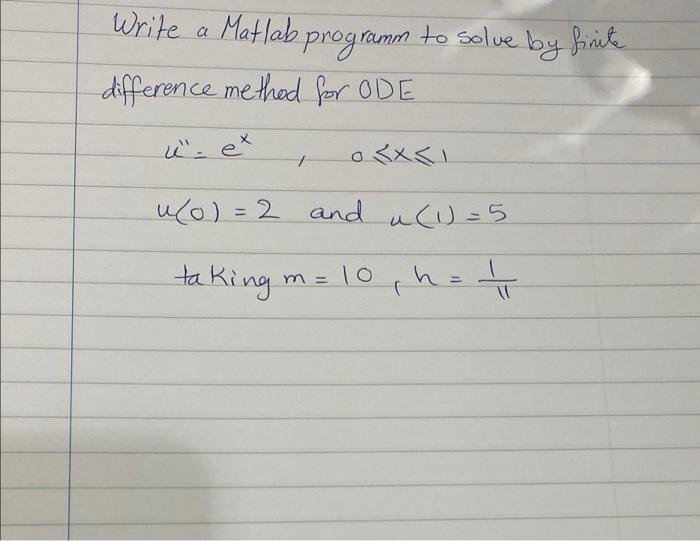 Write a Matlab programm to solve by finite
difference method for ODE
u'' = e^x , 0 ≤ x ≤ 1
u(0) = 2 and u(1) = 5
taking m = 10 , h = 1/11